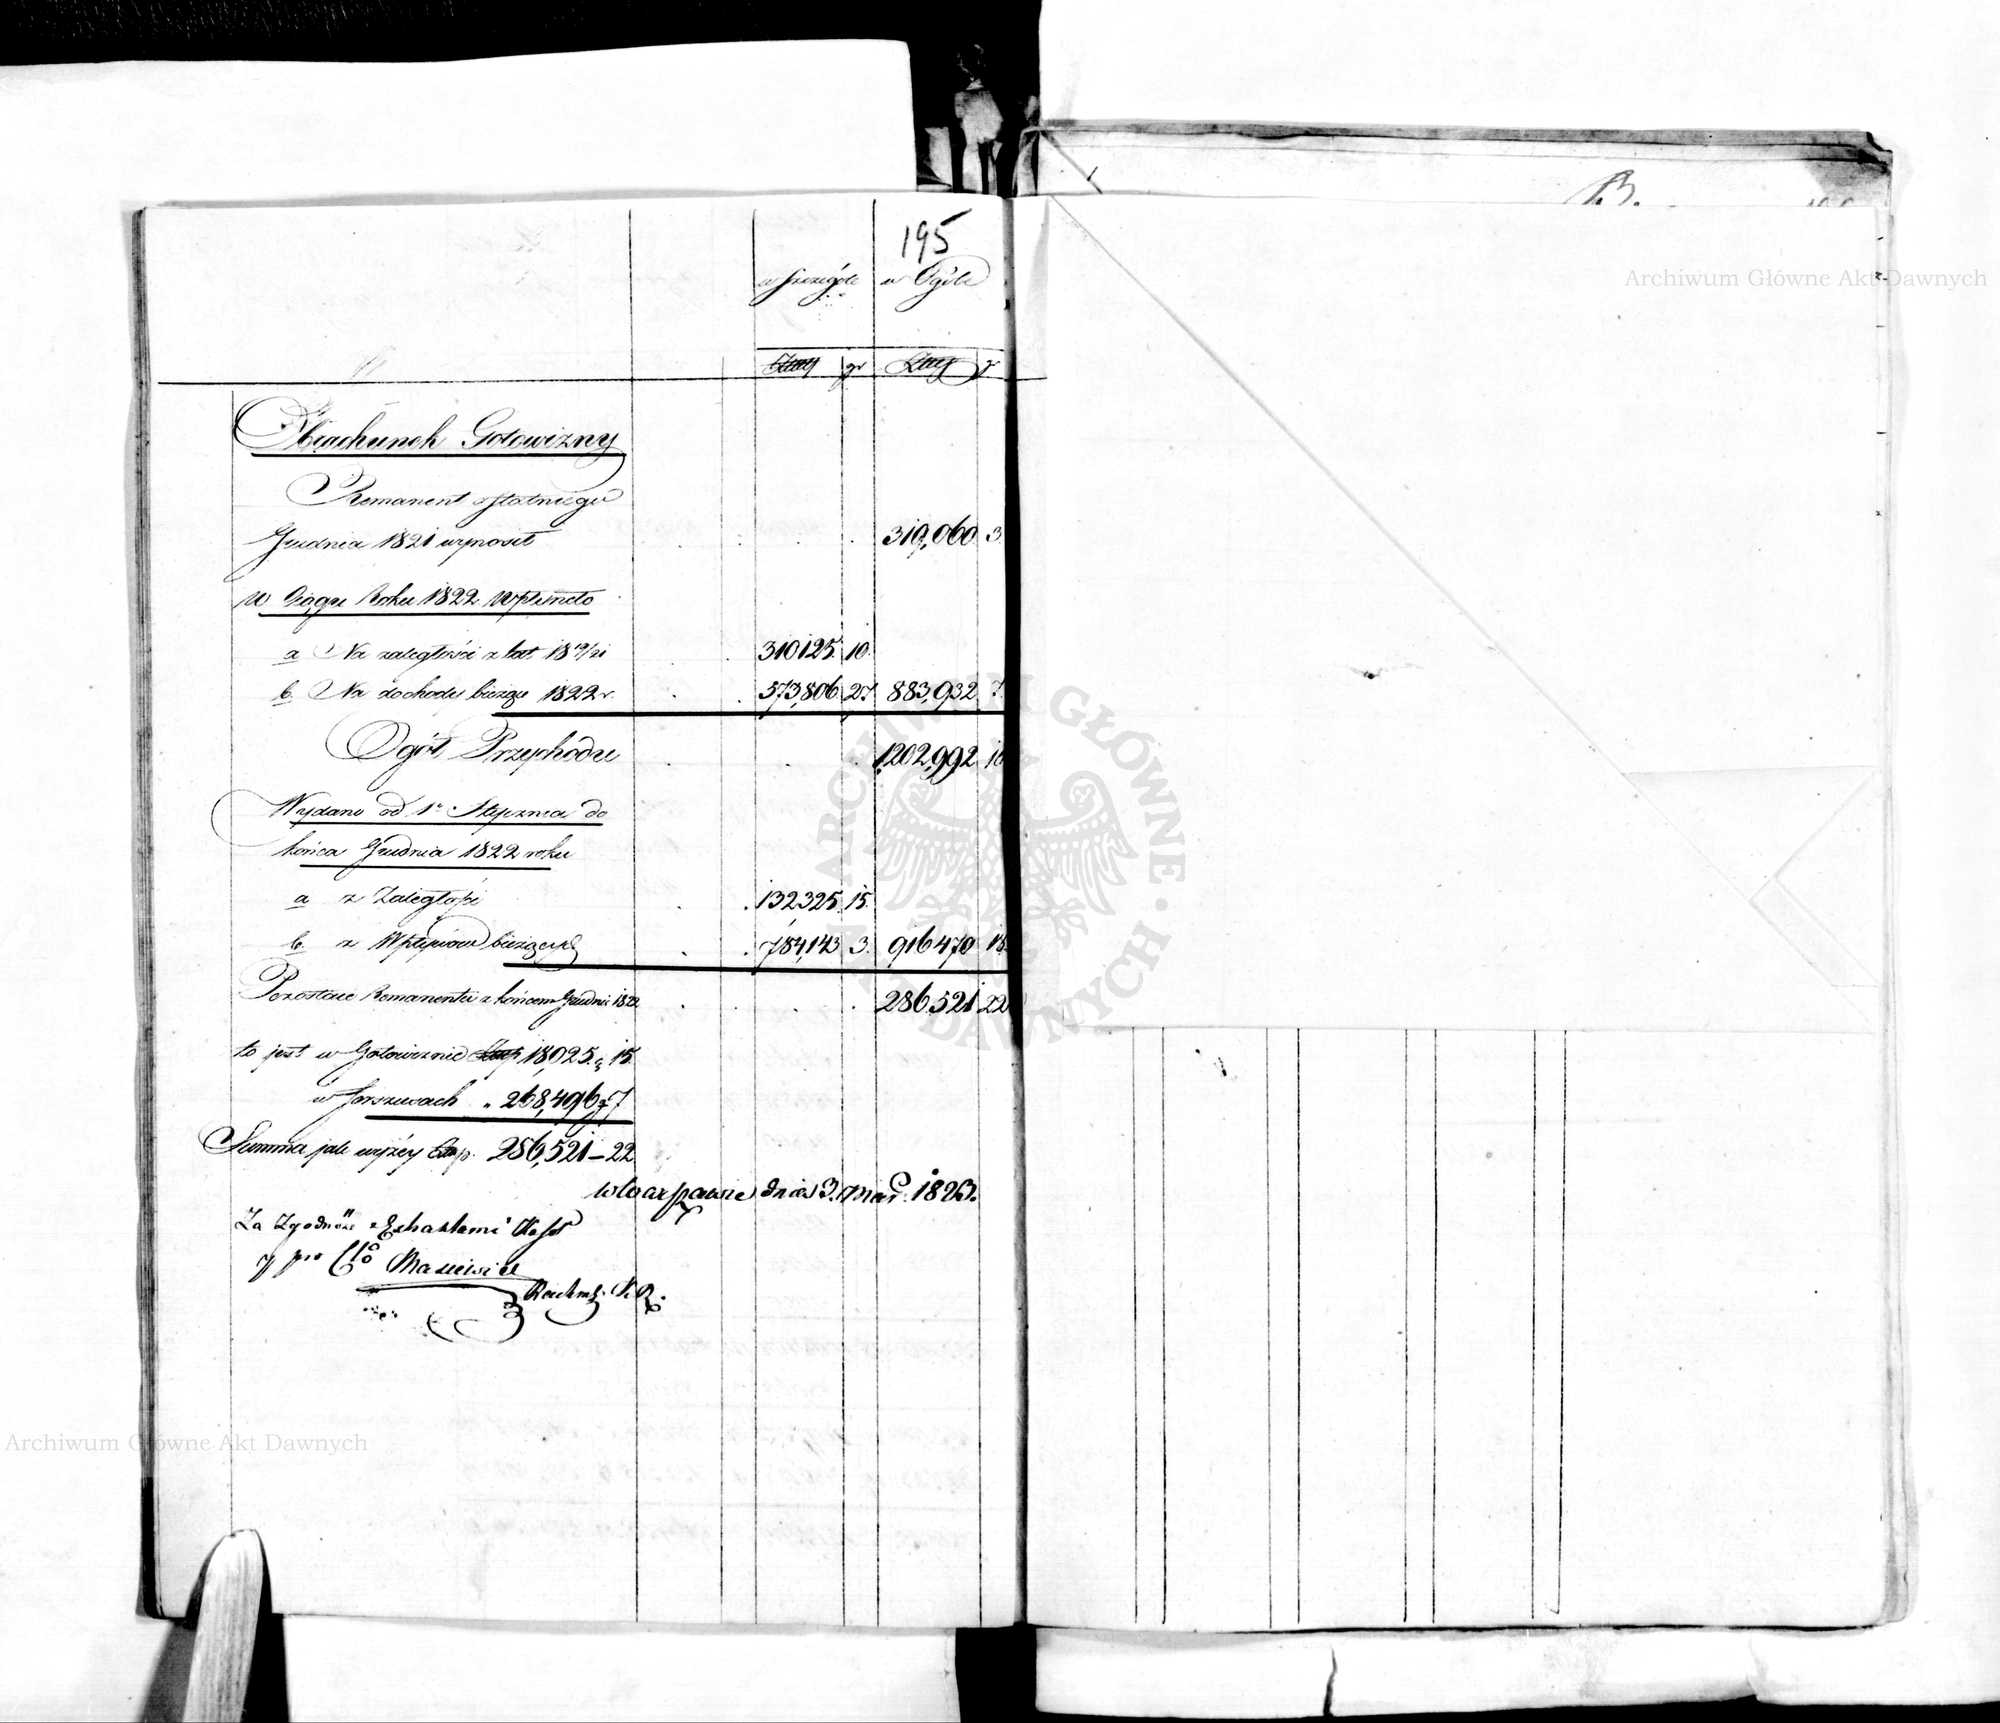 B.
195
w Szczególe w Ogóle
Złłp gr Złłp gr
Obrachunek Gotowizny
Remanent ostatniego
Grudnia 1821 wynosił 319,060 3.
W Ciągu Roku 1822 Wpłineło
a Na zaległości z lat 18 19/21 310125. 10.
b. Na dochody bieżące 1822 r. 573,806 27. 883,932 7.
Ogół Przychodu 1,202,992 10
Wydano od 1o Stycznia do
końca Grudnia 1822 roku
a z Zaległości 132325. 15.
b. z Wpływów bieżących 784,143 3. 916470 18.
Pozostaie Remanentu z końcem Grudnia 1822 286,521 22
to jest w Gotowiznie Złłp 18,025. 15.
w forszusach „ 268,496 7
Summa jak wyżéy Złłp. 286,521 – 22
w Warszawie dnia 3. Mar. 1823.
Za Zgodność z
y pro
Archiwum Główne Akt Dawnych
Archiwum Główne Akt Dawnych
ARCHIWUM GŁÓWNE AKT DAWNYCH